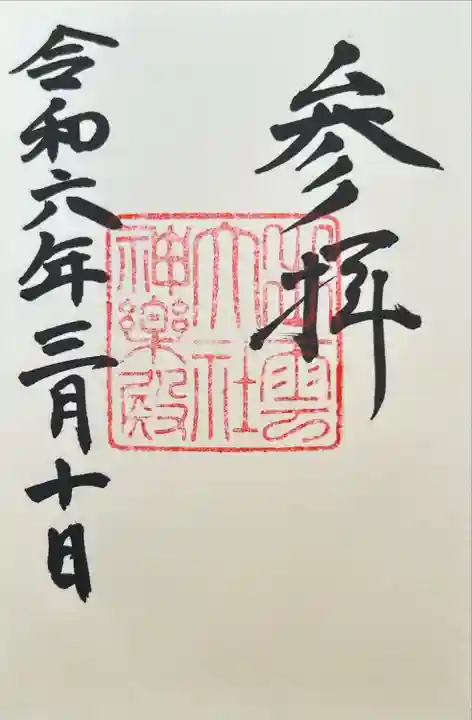 参拝
出雲
大社
神楽殿
令和六年三月十日